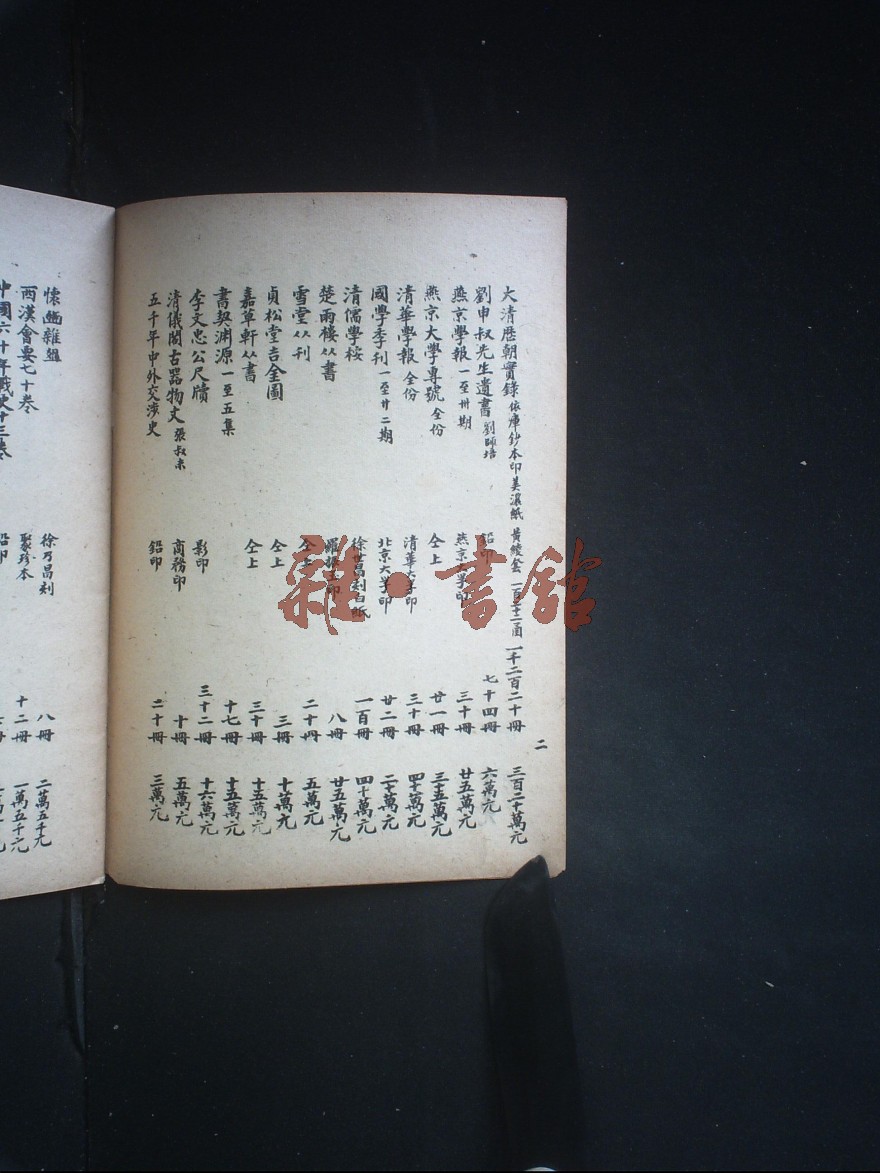 二
大清歷朝實錄 依庫鈔本印美濃紙 黄綾套 一百廿二函 一千二百二十冊 三百二十萬元
劉申叔先生遺書 劉師培 鉛印 七十四冊 六萬元
燕京學報 一至卅期 燕京大學印 三十冊 廿五萬元
燕京大學專號 全份 仝上 廿一冊 三十五萬元
清華學報 全份 清華大學印 三十冊 四十萬元
國學季刊 一至廿二期 北京大學印 廿二冊 二十萬元
清儒學桉 徐世昌刻白紙 一百冊 四十萬元
楚雨樓丛書 羅振玉印 八冊 廿五萬元
雪堂丛刊 仝上 二十冊 五萬元
貞松堂吉金圖 仝上 三冊 十萬元
嘉草軒丛書 仝上 三十冊 十五萬元
書契渊源 一至五集 十七冊 十五萬元
李文忠公尺牘 影印 三十二冊 十六萬元
清儀閣古器物文 張叔未 商務印 十冊 五萬元
五千年中外交涉史 鉛印 二十冊 三萬元
懷豳雜俎 徐乃昌刻 八冊 二萬五千元
西漢會要七十卷 聚珍本 十二冊 一萬五千元
中國六十年戰史十三卷 鉛印
雜·書館